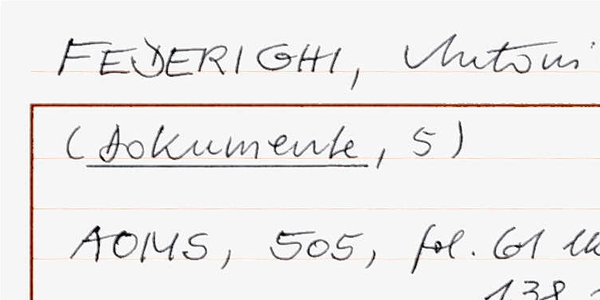 FEDERIGHI, Antoni
(Dokumente, 5)
AOMS, 505, fol. 61
138